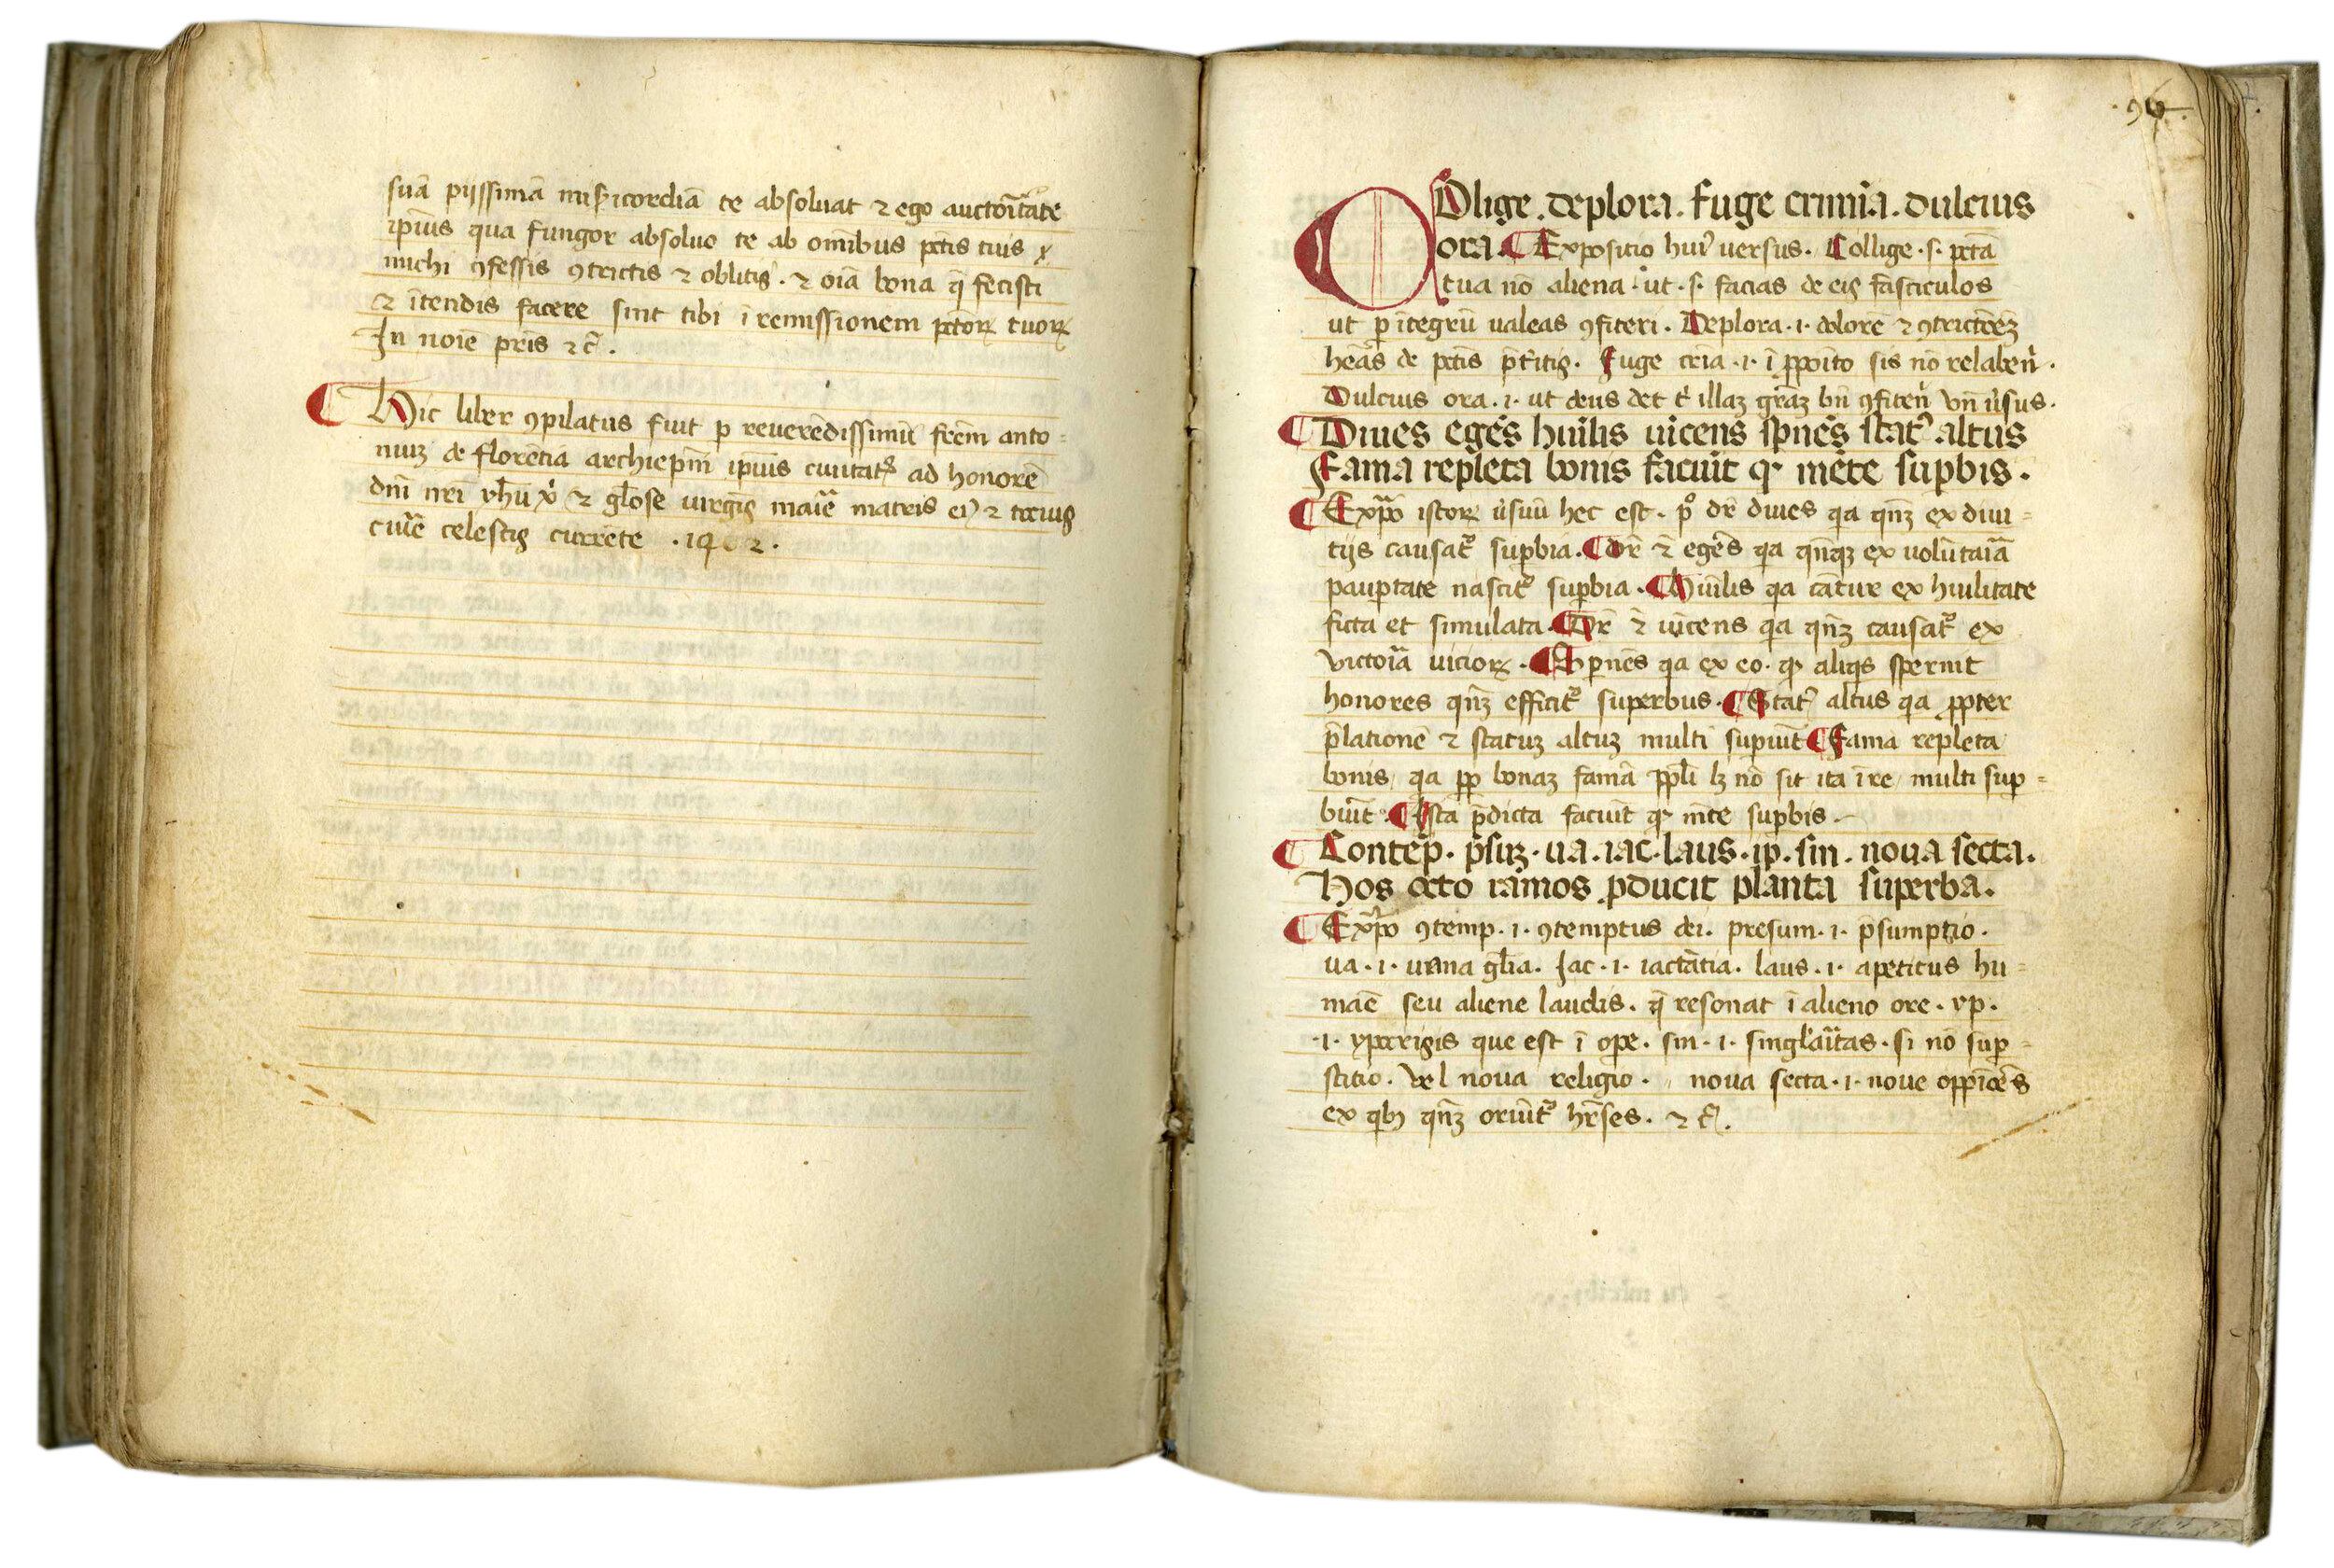 suā pijssimā mīsicordiā te absoluat ⁊ ego auctoritate
ipius qua fungor absoluo te ab omībus pctīs tuis
michi ꝯfessis ꝯtrictis ⁊ oblitis . ⁊ oīa bona q̄ fecisti
⁊ ītendis facere sint tibi ī remissionem pctōꝝ tuoꝝ
In noīe pris ⁊ c̄ .
Hic liber ꝯpilatus fuit ꝑ reuerēdissimū frēm anto=
niuꝫ de florētia archiepm̄ ipius ciuitat ad honorē
dn̄i nr̄i yhū xp̄i ⁊ glōse uirgīs marie matris eiꝰ ⁊ tocius
curie celestis currēte .
.96.
COlige . deplora . fuge crimīa . dulcius
ora . Expositio huiꝰ uersus . Collige . s . pctā
tua nō aliena . ut . s . facias de eis fasciculos
ut ꝑ ītegrū ualeas ꝯfiteri . Deplora . i . dolorē ⁊ ꝯtrictōeꝫ
heās de pctīs p̄titis . Fuge cria . i . ī ꝓpoīto sis nō relabendi .
Dulcius ora . i . ut deus det t illaꝫ grāꝫ bn̄ ꝯfitendi vn̄ ūsus .
Diues egēs huīlis uīcens spnēs statꝰ altus
Fama repleta bonis faciūt ꝙ mēte supbis .
Exp̄o istoꝝ ūsuū hec est . pº dr̄ diues qa qn̄ꝫ ex diui=
tijs causat supbia . dr̄ ⁊ egēs qa qn̄qꝫ ex uolūtaria
pauptate nascit supbia . Huīlis qa cātur ex huīlitate
ficta et simulata . Dr̄ ⁊ uīcens qa qn̄ꝫ causat ex
victoria uicioꝝ . Spnēs qa ex eo . ꝙ aliqs spernit
honores qn̄ꝫ efficit superbus . Statꝰ altus qa ꝓpter
p̄lationē ⁊ statuꝫ altuꝫ multi supiūt Fama repleta
bonis qa ꝓp bonaꝫ famā ppli lꝫ nō sit ita ī re multi sup=
biūt . Ista p̄dicta faciūt ꝙ mēte supbis .
Contēp . p̄suꝫ . ua . iac . laus . ip . sin . noua secta .
Hos octo ramos ꝓducit planta superba .
Exp̄o ꝯtemp . i . ꝯtemptus dei . presum . i . p̄sumptio .
ua . i . uana glīa . Jac . i . iactātia . laus . i . apetitus hu=
māe seu aliene laudis . q̄ resonat ī alieno ore . yp .
. i . ypocrisis que est ī ope . sin . i . singlaritas . si nō sup=
stitio . vel noua religio . noua secta . i . noue oppiōes
ex qbꝫ qn̄ꝫ oriūt hr̄ses . ⁊ c̄ .